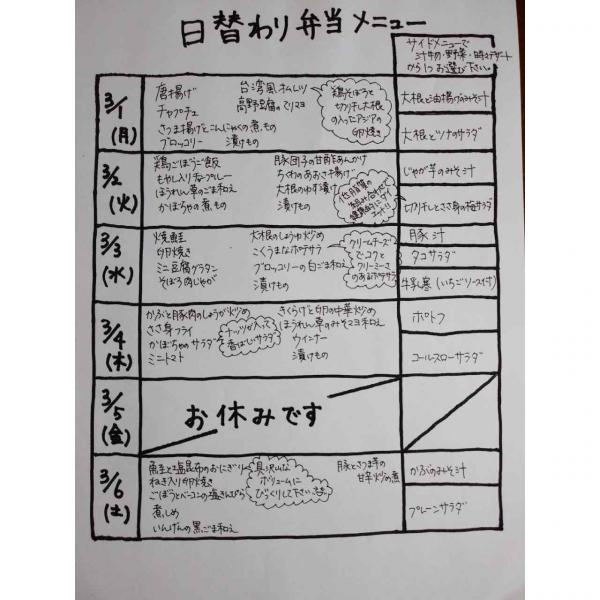 日替わり弁当メニュー
サイドメニューで
汁物・野菜・時々デザート
から1つお選び下さい。
3/1
(月)
唐揚げ
チャプチェ
さつま揚げとこんにゃくの煮もの
ブロッコリー
台湾風オムレツ
高野豆腐のてりマヨ
漬けもの
鶏そぼろと
切り干し大根
の入ったアジアの
卵焼き
大根と油揚げのみそ汁
大根とツナのサラダ
3/2
(火)
鶏ごぼうご飯
もやし入り
ほうれん草のごま和え
かぼちゃの煮もの
豚団子の甘酢あんかけ
ちくわのあおさ揚げ
大根のゆず漬け
漬けもの
低脂質の
健康的に
じゃが芋のみそ汁
切り干しとささ身の梅サラダ
3/3
(水)
焼鮭
卵焼き
ミニ豆腐グラタン
そぼろ肉じゃが
大根のしょうゆ炒め
こくうまなポテサラ
ブロッコリーの白ごま和え
漬けもの
クリームチーズ
でコクと
クリーミーさ
のあるポテサラ
豚汁
タコサラダ
牛乳寒(いちごソース付)
3/4
(木)
かぶと豚肉のしょうが炒め
ささ身フライ
かぼちゃのサラダ
ミニトマト
ナッツが入って
香ばしいサラダ
きくらげと卵の中華炒め
ほうれん草のみそマヨ和え
ウインナー
漬けもの
ポトフ
コールスローサラダ
3/5
(金)
お休みです
3/6
(土)
鮭と塩昆布のおにぎり
ねぎ入り卵焼き
ごぼうとベーコンの塩きんぴら
煮しめ
いんげんの黒ごま和え
具沢山な
ボリュームに
びっくりして下さい
豚とさつま芋の
甘辛炒め煮
かぶのみそ汁
プレーンサラダ